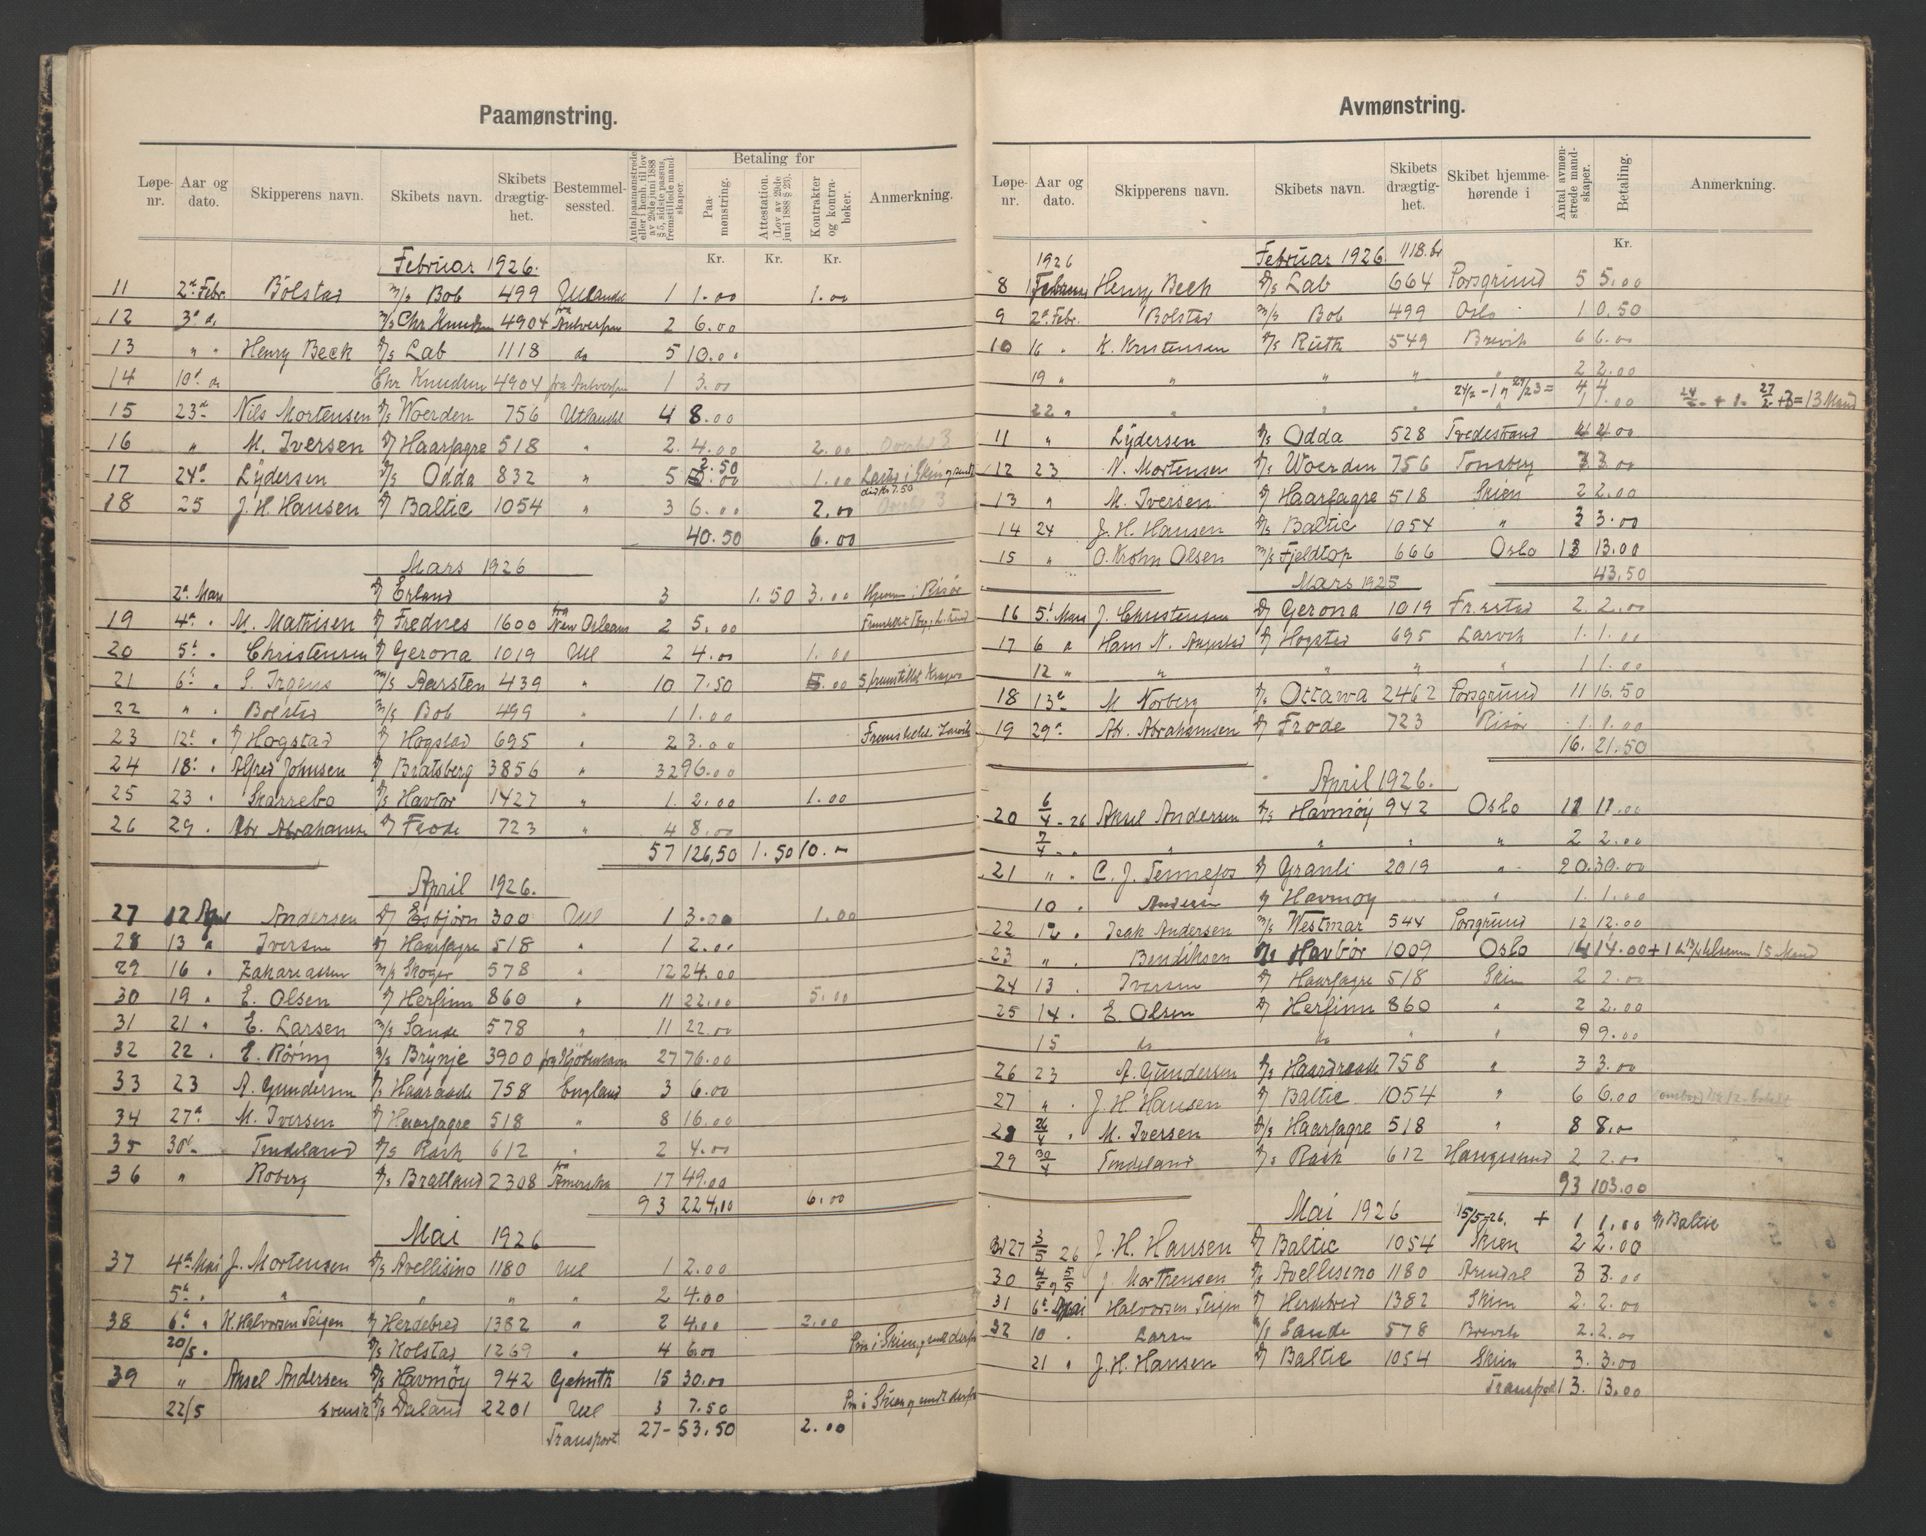 Paamønstring.
Løpe-nr. Aar og dato. Skipperens navn. Skibets navn. Skibets drægtig-het. Bestemmel-sessted. Antal paamønstrede eller i henh. til lov av 29de juni 1888 § 5, sidste passus, fremstillede mand-skaper. Betaling for Paa-mønstring. Attestation. (Lov av 29de juni 1888 § 23). Kontrakter og kontra-bøker. Anmerkning.
Kr. Kr. Kr.
Februar 1926.
11 2' Febr. Bolstad M/S Bob 499 Utlandet 1 1.00 1.00
12 3' d. M/S Chr Knudsen 4904 fra Antverpen 2 6.00
13 " " Henry Beck S/S Lab 1118 do 5 10.00
14 10' d. Chr Knudsen 4904 fra Antverpen 1 3.00
15 23' Nils Mortensen S/S Woerden 756 Utlandet 4 8.00
16 " M. Iversen D/ Haarfagre 518 " 2. 4.00 2.00
17 24' Lydersen D/S Odda 832 " 5 2.50 1.00
18 25 J. H. Hansen D/ Baltic 1054 " 3 6.00 2.00
40.50 6.00
Mars 1926
2' Mars D/ Erland 3 1.50 3.00 Risør
19 4' " M. Mathisen D/ Frednes 1600 fra New Orleans 2 5.00
20 5' " Christensen D/ Gerona 1019 Utl 2 4.00 1.00
21 6' " S. Irgens M/S Aarsten 439 " 10 7.50 5.00 5 fremstillet Kragerø
22 " " Bolstad M/S Bob 499 " 1 1.00
23 12' " D/ Hogstad D/ Hogstad 695 " 2 3.00 Fremstillet Larvik
24 18' " Alfred Johnsen D/ Bratsberg 3856 " 32 96.00
25 23 " Skarrebo D/S Havtor 1427 " 1. 2.00 1.00
26 29. Abr Abrahamsen D/ Frode 723 " 4 8.00
57 126,50 1.50 10.-
April 1926.
27 12 Apr Andersen D/ Esbjørn 300 Utl 1 3.00 1.00
28 13 " Iversen D/ Haarfagre 518 " 1 2.00
29 16 " Zakariassen M/S Skoger 578 " 12 24.00
30 19 " E. Olsen D/ Herfinn 860 " 11 22.00 5.00
31 21 " E. Larsen M/S Sande 578 " 11 22.00
32 22. E. Röring D/S Brynje 3900 fra Kjøbenhavn 27 76.00
33 23 A. Gundersen D/ Haaraade 758 England 3 6.00
34 27' M. Iversen D/ Haarfagre 518 " 8 16.00
35 30' Tendeland D/S Rask 612 " 2 4.00
36 " Roberg D/S Bratland 2308 fra Amerika 17 49.00
93 224,00 6.00
Mai 1926
37 4' Mai J. Mortensen D/S Avellisino 1180 Utl 1 2.00
5' " " " " " 2 4.00
38 6' " K. Halvorsen Teigen D/ Herdebred 1382 " 2 4.00 2.00
20/5 . D/S Kolstad 1269 " 4 6.00
39 " Aksel Andersen D/S Havmøy 942 15 30.00
22/5 svensk D/S Daland 2201 Utl 3 7.50
Transport 27 - 53.50 2.00
Avmønstring.
Løpe-nr. Aar og dato. Skipperens navn. Skibets navn. Skibets drægtig-het. Skibet hjemme-hørende i Antal avmøn-strede mand-skaper. Betaling. Anmerkning.
Kr.
1926 Februar 1926. 1118.br
8 1 Februar Henry Beck S/S Lab 664 Porsgrund 5 5.00
9 2' Febr. Bolstad M/S Bob 499 Oslo 1 0.50
10 16 " K. Kristensen D/S Ruth 549 Brevik 6 6.00
19 " " " " " 2 2.00
24/2 - 1 27/2 3 = 4 4
22 " " " " " 1 1.00 24/2 + 1 27/2 + 3 = 13 Mand
11 " Lydersen D/S Odda 528 Tvedestrand 4 4.00
12 23 N. Mortensen D/S Woerden 756 Tønsberg 3 3.00
13 " M. Iversen D/ Haarfagre 518 Skien 2 2.00
14 24 J. H. Hansen D/S Baltic 1054 " 3 3.00
15 " O. Krohn Olsen M/S Fjeldtop 666 Oslo 13 13.00
43,50
Mars 1925
16 5' Mars J. Christensen D/ Gerona 1019 Fr.stad 2. 2.00
17 6 " Hans N. D/ Hogstad 695 Larvik 1. 1.00
12 " " " " " 1 1.00
18 13' M. Norberg D/S Ottawa 2462 Porsgrund 11 16.50
19 29' Abr. Abrahamsen D/ Frode 723 Risør 1. 1.00
16. 21.50
April 1926.
20 6/4 - 26 Aksel Andersen D/S Havmøy 942 Oslo 11 11.00
7/4 " " " " " 2 2.00
21 " . C. J. Tennefos D/ Granli 2019 " 20. 30.00
10 . Andersen D/ Havmøy 1. 1.00
22 12 . Isak Andersen M/S Westmar 544 Porsgrund 12 12.00
23 " . Bendiksen D/S Havbør 1009 Oslo 14 14.00 + 1 15 Mand
24 13 . Iversen D/ Haarfagre 518 Skien 2 2.00
25 14 . E Olsen D/ Herfinn 860 " 2 2.00
15 do do " " 9 9.00
26 23 A. Gundersen D/S Haardraade 758 " 3 3.00
27 " . J. H. Hansen D/ Baltic 1054 " 6 6.00
28 26/4 " M. Iversen D/S Haarfagre 518 " 8 8.00
29 30/4 Tendeland D/S Rask 612 Haugesund 2 2.00
93 103.00
Mai 1926 15/5-26. + 1 1.00 D/S Baltic
27 3/5 26 J. H. Hansen D/ Baltic 1054 Skien 2 2.00
30 4/5 5/5 J. Morthensen D/S Avellisino 1180 Arendal 3 3.00
31 6' Mai Halvorsen Teigen D/ Herdebred 1382 Skien 2. 2.00
32 10 . Larsen M/S Sande 578 Brevik 2. 2.00
21 . J. H. Hansen D/ Baltic 1054 Skien 3. 3.00
Transport 13. 13.00